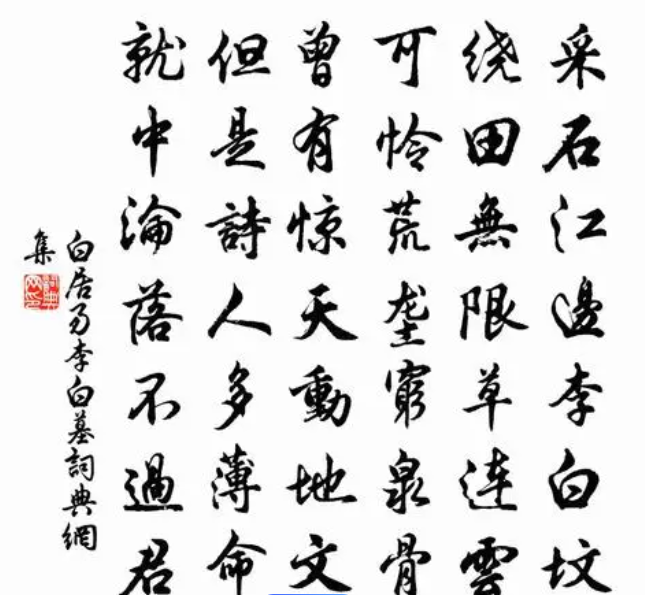 采石江邊李白坟
绕田無限草連雲
可怜荒垄窮泉骨
曾有惊天動地文
但是詩人多薄命
就中淪落不過君
白居易李白墓詞典網
集